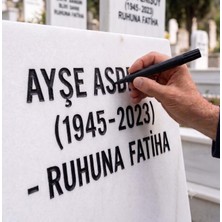 (1945-2023)
RUHUNA FATİHA
AYŞE
(1945-2023)
- RUHUNA FATİHA